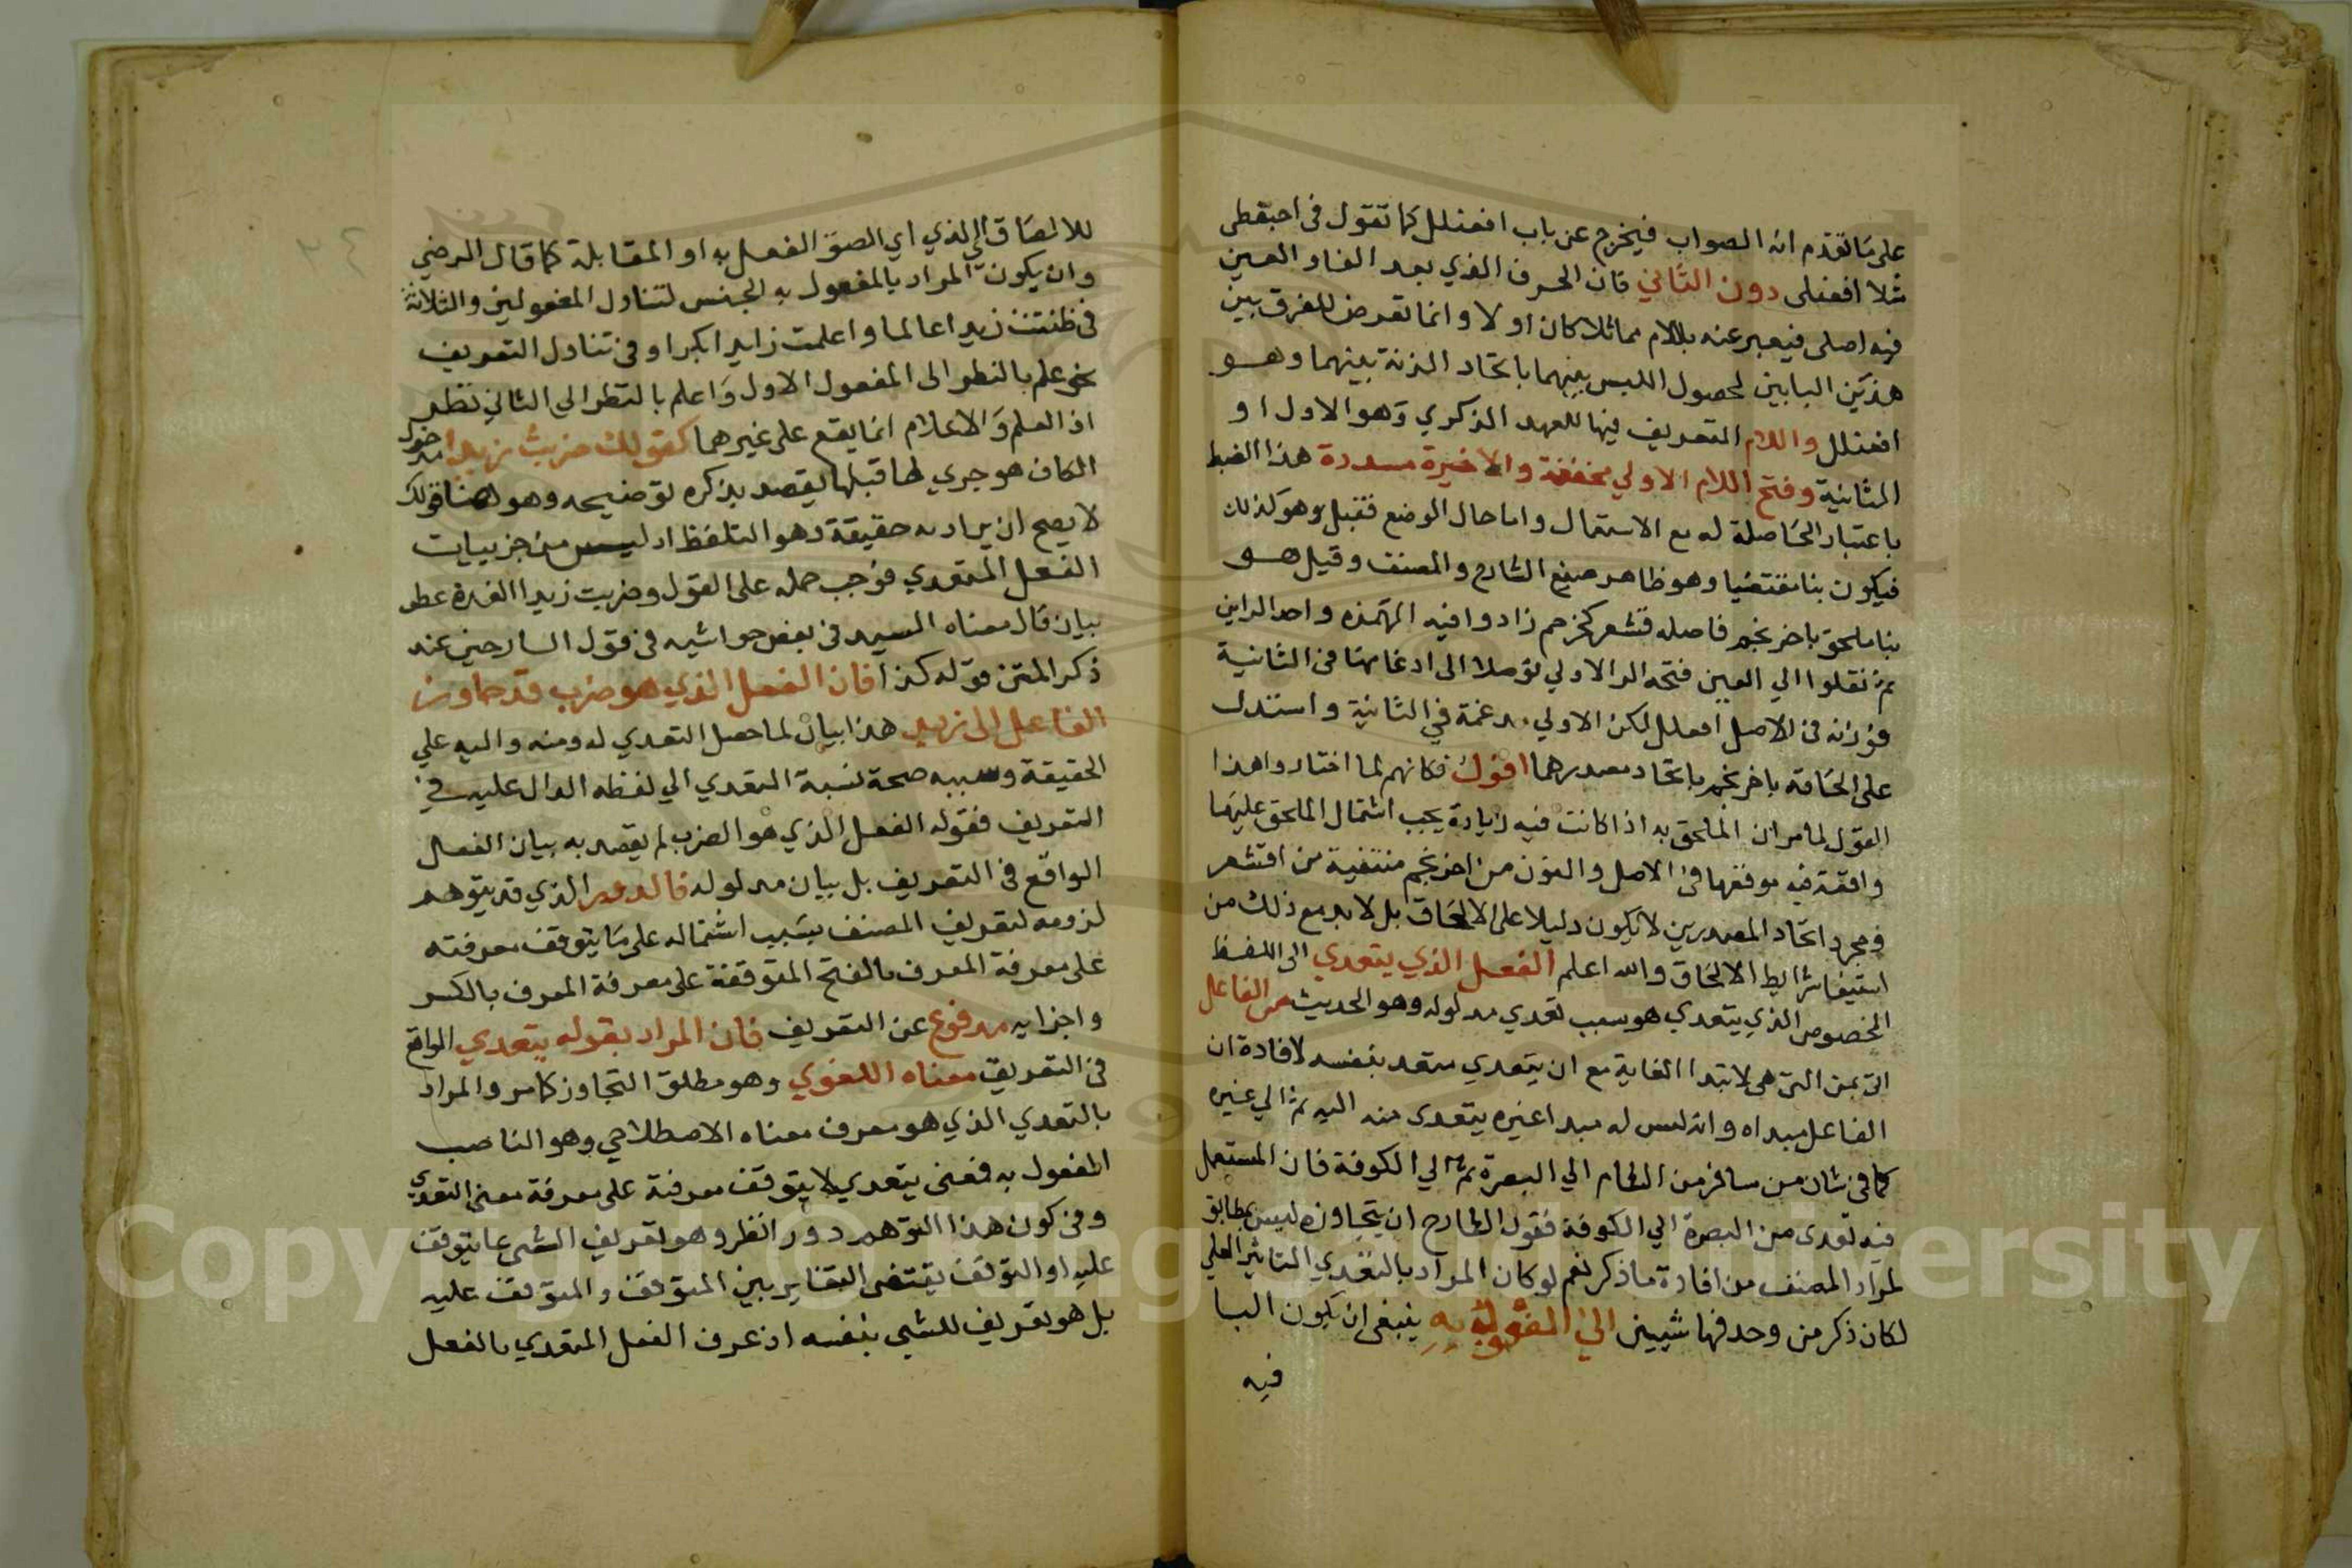 على ما تقدم انه الصواب فيخرج عن باب افعنلل كما تقول في احبنطى
مثلا افعنلى دون الثاني فان الحرف الذي بعد الفاء والعين
فيه اصلى فيعبر عنه باللام مماثلا كان او لا وانما تعرض للفرق بين
هذين البابين لحصول اللبس بينهما باتحاد الزنة بينهما وهو
افعنلل واللام التعريف فيها للعهد الذكري وهو الاول او
الثانية وفتح اللام الاولي مخففة والاخيرة مسددة هذا الضبط
باعتبار الحاصلة له مع الاستعمال واما حال الوضع فقيل وهو كذلك
فيكون بنا مقتضيا وهو ظاهر صنيع الشارح والمصنف وقيل هو
بنا ملحق باحرنجم فاصله قشعر كخرجم زادوا فيه الهمزه واحد الراين
ثم نقلوا الي العين فتحه الرا الاولي توصلا الى ادغامها في الثانية
فوزنه في الاصل افعلل لكن الاولي مدغمة في الثانية واستدل
على الحاقه باحرنجم باتحاد مصدرهما اقول فكانهم لما اختاروا هذا
القول لما مر ان الملحق به اذا كانت فيه زيادة يجب اشتمال الملحق عليها
واقعة فيه موقعها في الاصل والنون من احرنجم منتفية من اقشعر
فمجرد اتحاد المصدرين لا يكون دليلا على الالحاق بل لا بد مع ذلك من
استيفا شرايط الالحاق والله اعلم الفعل الذي يتعدي الى اللفظ
المخصوص الذي يتعدي هو سبب تعدي مدلوله وهو الحديث من الفاعل
اتى بمن التى هى لابتدا الغاية مع ان يتعدي متعد بنفسه لافادة ان
الفاعل مبداه وانه ليس له مبدا غيره يتعدى منه اليه ثم الي غيره
كما في شان من سافر من الشام الي البصرة ثم الي الكوفة فان المستعمل
فيه تعدى من البصرة الي الكوفة فقول الشارح ان يتجاوزه ليس بمطابق
لمراد المصنف من افادة ما ذكر نعم لو كان المراد بالتعدي التاثير العلمي
لكان ذكر من وحدفها شيين الي المفعول به ينبغى ان يكون البا
فيه
للالصاق الي الذي اي الصق الفعل به او المقابلة كما قال الرضي
وان يكون المراد بالمفعول به الجنس لتناول المفعولين والثلاثة
في ظننت زيدا عالما واعلمت زايدا بكرا وفي تناول التعريف
نحو علم بالنظر الى المفعول الاول واعلم بالنظر الي الثاني نظر
اذ العلم والاعلام انما يقع على غيرهما كقولك ضربت زيدا
الكاف هو جري لها قبلها يقصد بذكره توضيحه وهو هنا قولك
لا يصح ان يراد به حقيقة وهو التلفظ اذ ليس من جزييات
الفعل المتعدي فوجب حمله على القول وضربت زيدا
بيان قال معناه السيد في بعض حواشيه في قول السارحين عند
ذكر المتن قوله كذا فان الفعل الذي هو ضرب قد جاوز
الفاعل الى زيد هذا بيان لما حصل التعدي له ومنه واليه علي
الحقيقة وسببه صحة نسبة المتعدي الي لفظه الدال عليه في
التعريف فقوله الفعل الذي هو الضرب لم يقصد به بيان الفعل
الواقع في التعريف بل بيان مدلوله فالدور الذي قد يتوهم
لزومه لتعريف المصنف بسبب اشتماله على ما يتوقف معرفته
على معرفة المعرف بالفتح المتوقفة على معرفة المعرف بالكسر
واجزايه مدفوع عن التعريف فان المراد بقوله يتعدي الواقع
في التعريف معناه اللغوي وهو مطلق التجاوز كما مر والمراد
بالتعدي الذي هو معرف معناه الاصطلاحي وهو الناصب
المفعول به فمعنى يتعدي لا يتوقف معرفته على معرفة معنى التعدي
وفي كون هذا التوهم دور انظر وهو تعريف الشى بما يتوقف
عليه او التوقف يقتضى التغاير بين المتوقف والمتوقف عليه
بل هو تعريف للشي بنفسه اذ عرف الفعل المتعدي بالفعل
٢٤
Copyright © King Saud University